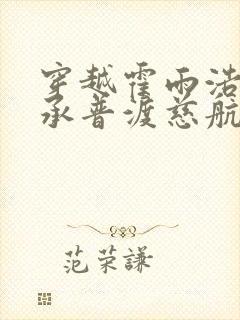 穿越霍雨浩
承普渡慈航
范荣謙